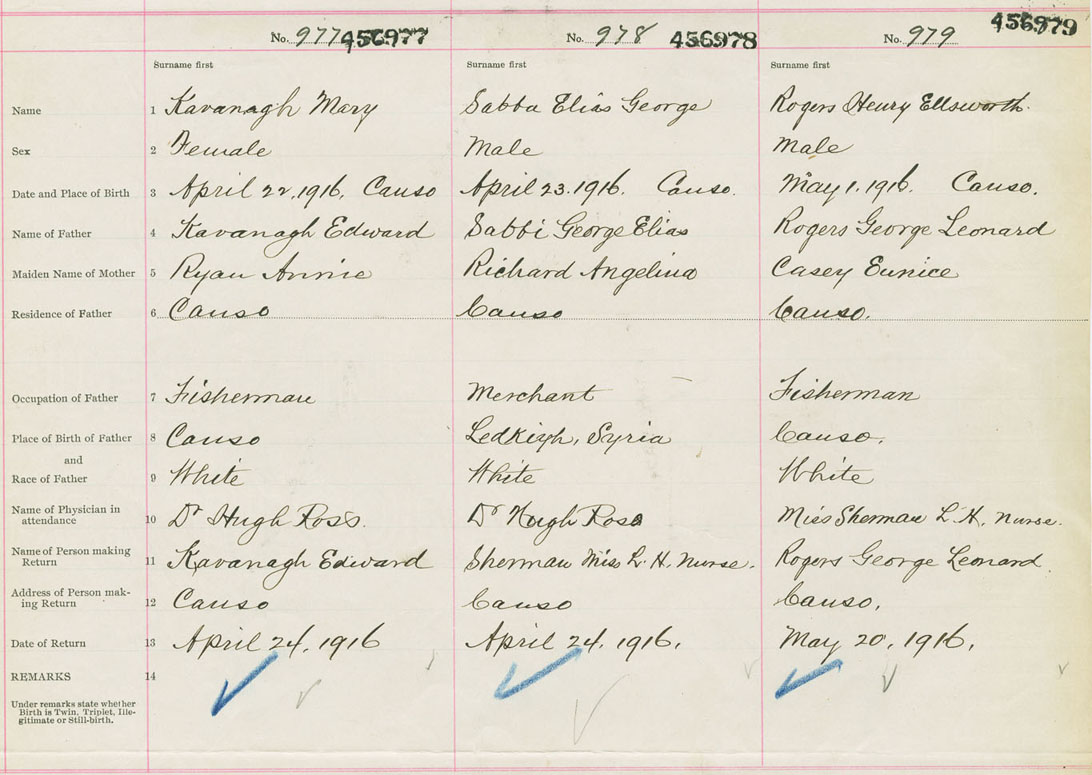 No. 977 456977 No. 978 456978 No. 979 456979
Surname first Surname first Surname first
Name 1 Kavanagh Mary Sabba Elias George Rogers Henry Ellsworth.
Sex 2 Female Male Male
Date and Place of Birth 3 April 22, 1916, Canso April 23. 1916. Canso. May 1, 1916. Canso.
Name of Father 4 Kavanagh Edward Sabbi George Elias Rogers George Leonard
Maiden Name of Mother 5 Ryan Annie Richard Angelina Casey Eunice
Residence of Father 6 Canso Canso Canso.
Occupation of Father 7 Fisherman Merchant Fisherman
Place of Birth of Father 8 Canso Syria Canso.
and
Race of Father 9 White White White
Name of Physician in
attendance 10 Dr Hugh Ross. Dr Hugh Ross Miss Sherman L. H, Nurse.
Name of Person making
Return 11 Kavanagh Edward Sherman Miss L. H. Nurse. Rogers George Leonard
Address of Person mak-
ing Return 12 Canso Canso Canso,
Date of Return 13 April 24, 1916 April 24, 1916, May 20, 1916,
REMARKS 14
Under remarks state whether
Birth is Twin, Triplet, Ille-
gitimate or Still-birth.